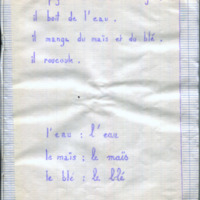 il boit de l'eau.
il mange du maïs et du blé.
il roucoule.
l'eau : l'eau
le maïs : le maïs
le blé : le blé